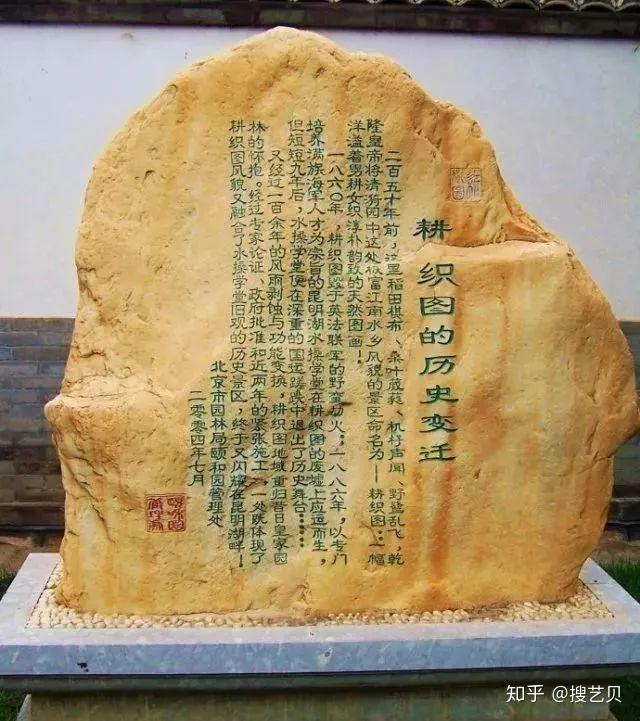 耕织图的历史变迁
二百五十年前,这里稻田棋布、桑叶葳蕤、机杼声闻、野乱飞,乾
隆皇帝将清漪园中这处极富江南水乡风貌的景区命名为——耕织图:一幅
洋溢着男耕女织淳朴韵致的天然图画!
一八六〇年,耕织图毁于英法联军的野蛮劫火;一八八六年,以专门
培养满族海军人才为宗旨的昆明湖水操学堂在耕织图的废墟上应运而生,
但短短九年后,水操学堂便在深重的国运蹉跌中退出了历史舞台……
又经过一百余年的风雨剥蚀与功能变换,耕织图地域重归昔日皇家园
林的怀抱。经过专家论证、政府批准和近两年的紧张施工,一处既体现了
耕织图风貌又融合了水操学堂旧观的历史景区,终于又闪耀在昆明湖畔!
北京市园林局颐和园管理处
二〇〇四年七月
知乎 @搜艺贝